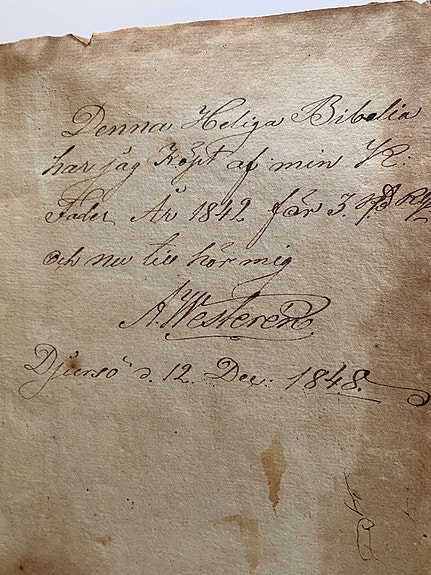 Denna Heliga Bibelia
har jag Köpt af min K:
Fader År 1842 för 3. Rd
och nu till hör mig
A. Westeren
Djursö d. 12. Dec: 1848.